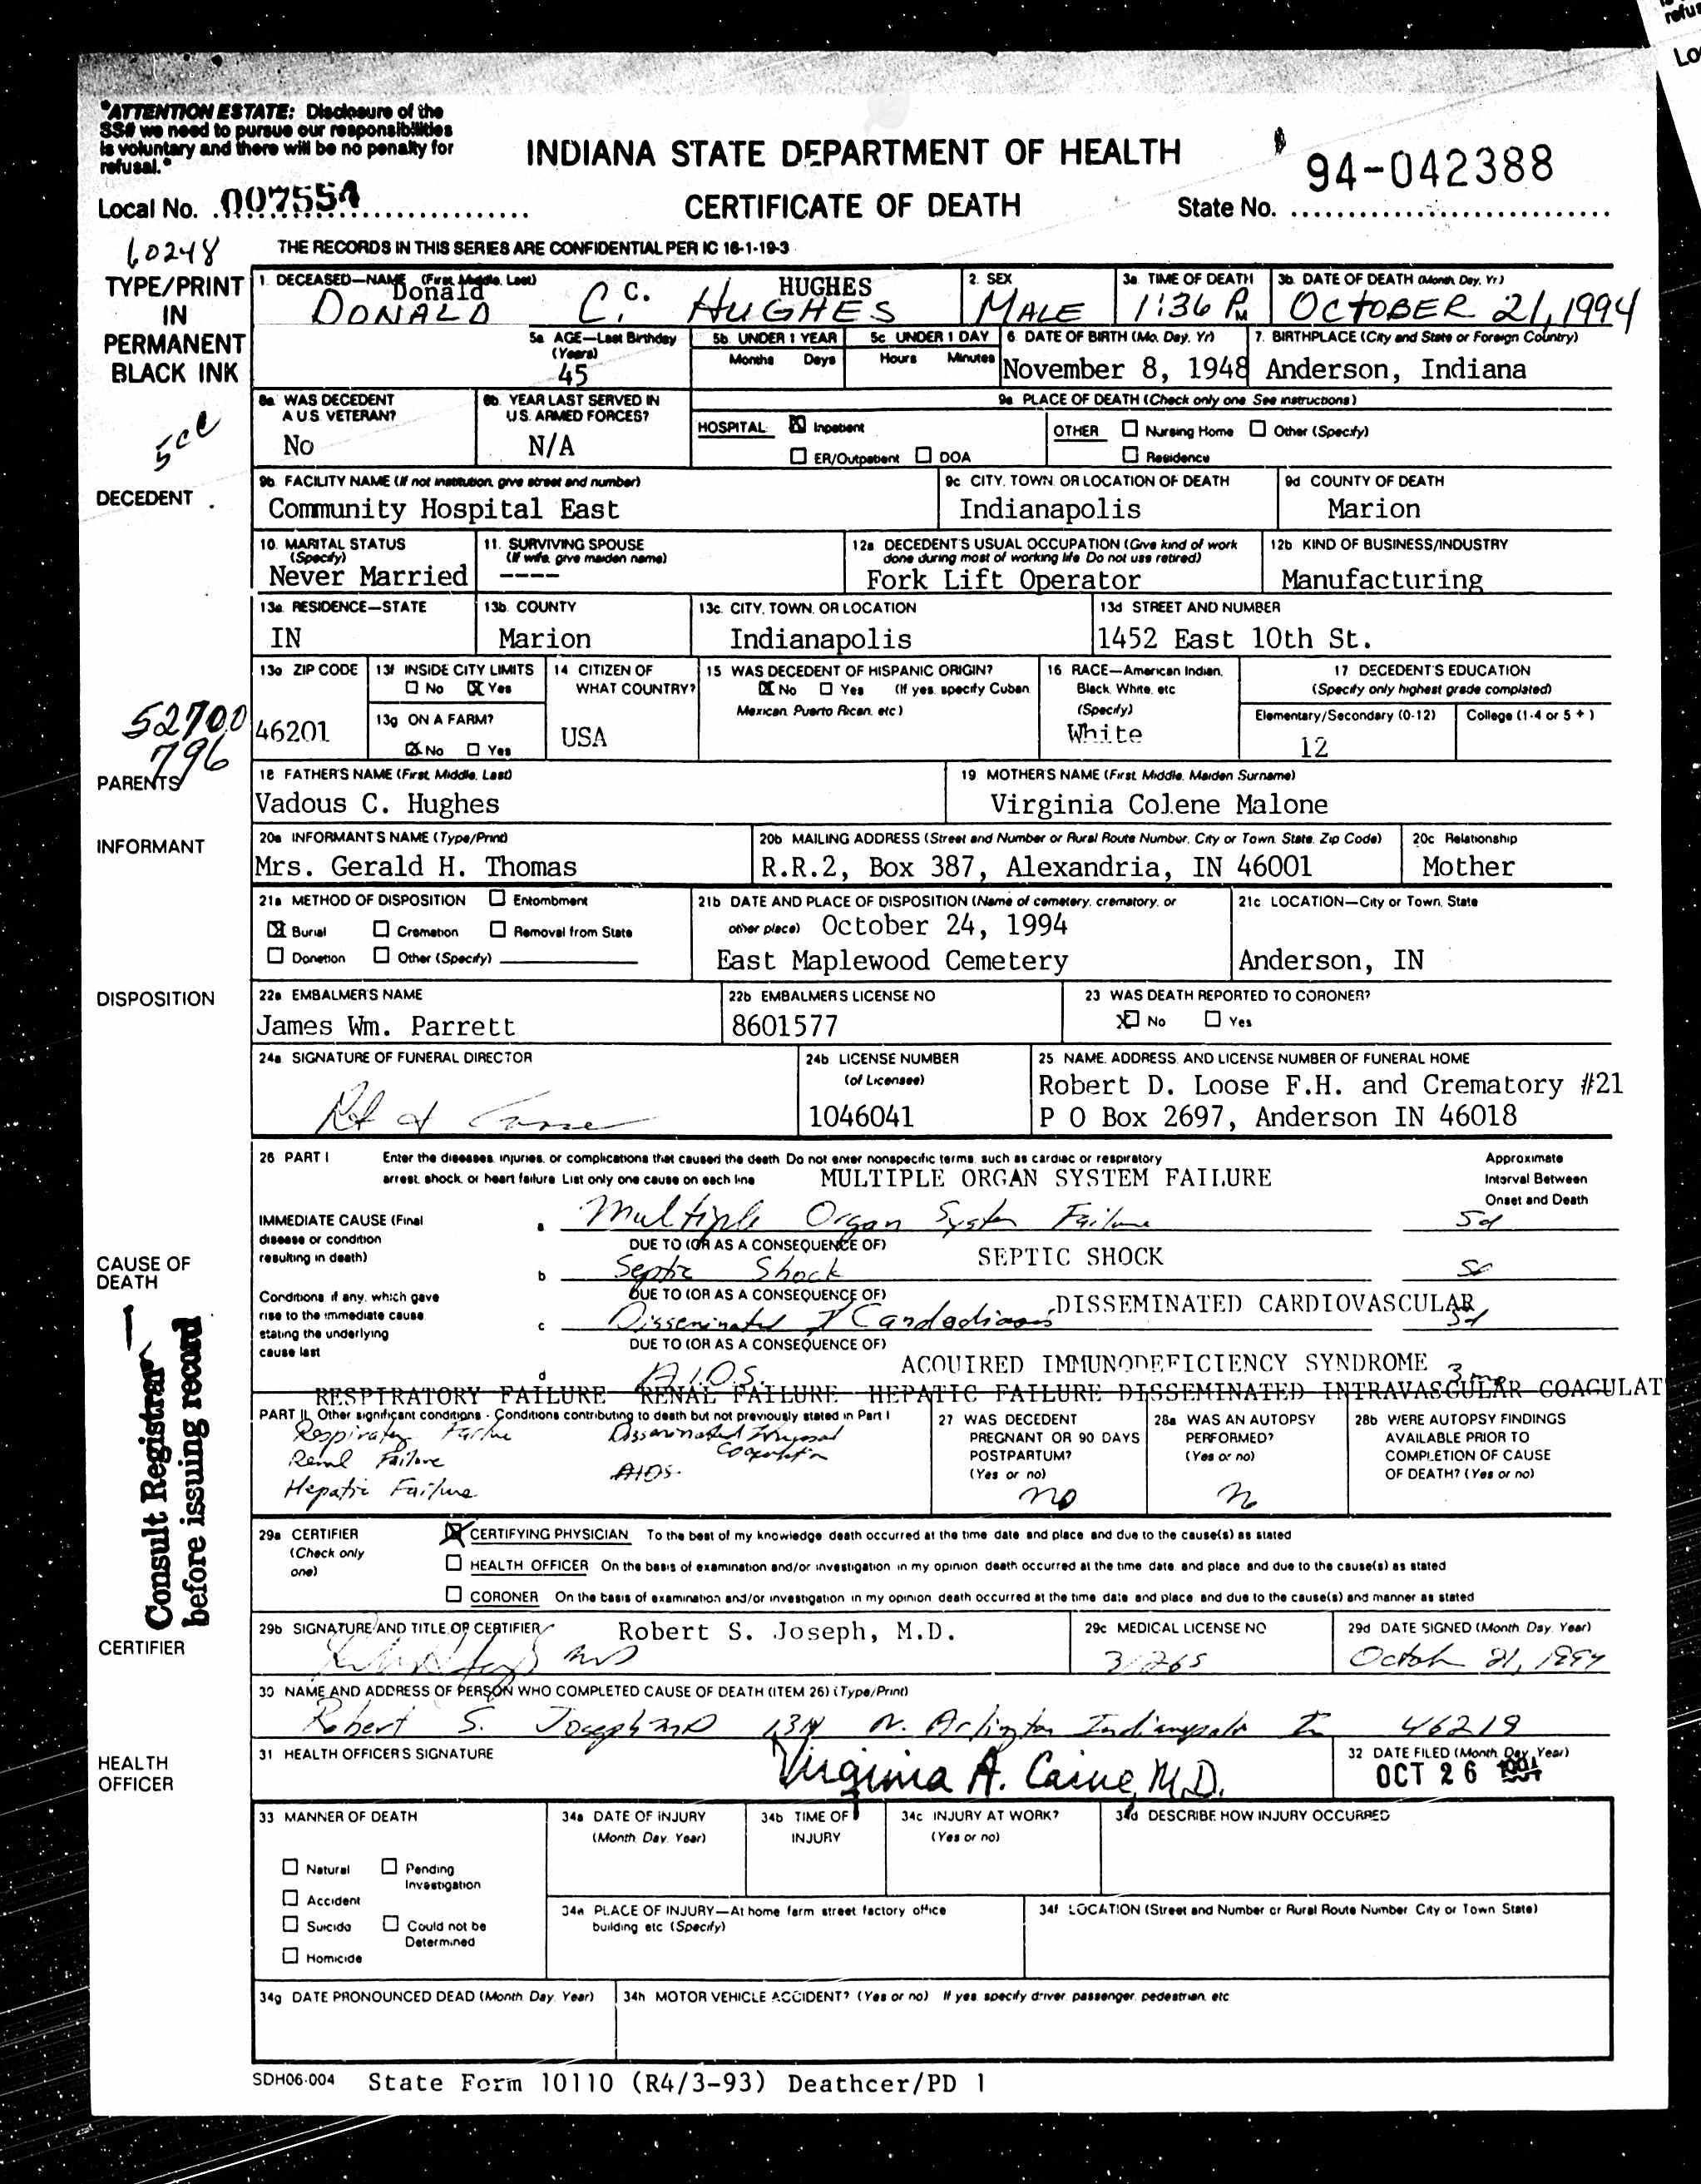 refus
Lo
"ATTENTION ESTATE: Disclosure of the
SS# we need to pursue our responsibilities
is voluntary and there will be no penalty for
refusal."
INDIANA STATE DEPARTMENT OF HEALTH
94-042388
Local No. 007554
CERTIFICATE OF DEATH
State No.
60248
THE RECORDS IN THIS SERIES ARE CONFIDENTIAL PER IC 16-1-19-3
TYPE/PRINT
IN
PERMANENT
BLACK INK
1. DECEASED—NAME (First, Middle, Last)
Donald C. HUGHES
DONALD C. HUGHES
2. SEX
MALE
3a. TIME OF DEATH
1:36 PM
3b. DATE OF DEATH (Month, Day, Yr)
OCTOBER 21, 1994
5a. AGE—Last Birthday
(Years)
45
5b. UNDER 1 YEAR
Months Days
5c. UNDER 1 DAY
Hours Minutes
6. DATE OF BIRTH (Mo. Day. Yr)
November 8, 1948
7. BIRTHPLACE (City and State or Foreign Country)
Anderson, Indiana
5ce
8a. WAS DECEDENT
A U.S. VETERAN?
No
8b. YEAR LAST SERVED IN
U.S. ARMED FORCES?
N/A
9a. PLACE OF DEATH (Check only one. See instructions)
HOSPITAL: Inpatient
ER/Outpatient DOA
OTHER Nursing Home Other (Specify)
Residence
DECEDENT
9b. FACILITY NAME (If not institution, give street and number)
Community Hospital East
9c. CITY, TOWN OR LOCATION OF DEATH
Indianapolis
9d. COUNTY OF DEATH
Marion
10. MARITAL STATUS
(Specify)
Never Married
11. SURVIVING SPOUSE
(If wife, give maiden name)
----
12a. DECEDENT'S USUAL OCCUPATION (Give kind of work
done during most of working life. Do not use retired)
Fork Lift Operator
12b. KIND OF BUSINESS/INDUSTRY
Manufacturing
13a. RESIDENCE—STATE
IN
13b. COUNTY
Marion
13c. CITY, TOWN, OR LOCATION
Indianapolis
13d. STREET AND NUMBER
1452 East 10th St.
13e. ZIP CODE
46201
13f. INSIDE CITY LIMITS
No Yes
13g. ON A FARM?
No Yes
14. CITIZEN OF
WHAT COUNTRY?
USA
15. WAS DECEDENT OF HISPANIC ORIGIN?
No Yes (If yes, specify Cuban,
Mexican, Puerto Rican, etc.)
16. RACE—American Indian,
Black, White, etc.
(Specify)
White
17. DECEDENT'S EDUCATION
(Specify only highest grade completed)
Elementary/Secondary (0-12)
12
College (1-4 or 5+)
52700
796
PARENTS
18. FATHER'S NAME (First, Middle, Last)
Vadous C. Hughes
19. MOTHER'S NAME (First, Middle, Maiden Surname)
Virginia Colene Malone
INFORMANT
20a. INFORMANT'S NAME (Type/Print)
Mrs. Gerald H. Thomas
20b. MAILING ADDRESS (Street and Number or Rural Route Number, City or Town, State, Zip Code)
R.R.2, Box 387, Alexandria, IN 46001
20c. Relationship
Mother
21a. METHOD OF DISPOSITION Entombment
Burial Cremation Removal from State
Donation Other (Specify)
21b. DATE AND PLACE OF DISPOSITION (Name of cemetery, crematory, or
other place) October 24, 1994
East Maplewood Cemetery
21c. LOCATION—City or Town, State
Anderson, IN
DISPOSITION
22a. EMBALMER'S NAME
James Wm. Parrett
22b. EMBALMER'S LICENSE NO
8601577
23. WAS DEATH REPORTED TO CORONER?
No Yes
24a. SIGNATURE OF FUNERAL DIRECTOR
24b. LICENSE NUMBER
(of Licensee)
1046041
25. NAME, ADDRESS, AND LICENSE NUMBER OF FUNERAL HOME
Robert D. Loose F.H. and Crematory #21
P O Box 2697, Anderson IN 46018
26. PART I Enter the diseases, injuries, or complications that caused the death. Do not enter nonspecific terms, such as cardiac or respiratory
arrest, shock, or heart failure. List only one cause on each line
Approximate
Interval Between
Onset and Death
MULTIPLE ORGAN SYSTEM FAILURE
IMMEDIATE CAUSE (Final
disease or condition
resulting in death)
a Multiple Organ System Failure 5d
DUE TO (OR AS A CONSEQUENCE OF)
SEPTIC SHOCK
CAUSE OF
DEATH
b Septic Shock
Conditions if any, which gave
rise to the immediate cause
stating the underlying
cause last
DUE TO (OR AS A CONSEQUENCE OF)
DISSEMINATED CARDIOVASCULAR
c Disseminated
DUE TO (OR AS A CONSEQUENCE OF)
ACQUIRED IMMUNODEFICIENCY SYNDROME
d A.I.D.S.
RESPIRATORY FAILURE RENAL FAILURE HEPATIC FAILURE DISSEMINATED INTRAVASCULAR COAGULAT
PART II. Other significant conditions - Conditions contributing to death but not previously stated in Part I
Respiratory Failure
Renal Failure
Hepatic Failure
Disseminated
AIDS.
27. WAS DECEDENT
PREGNANT OR 90 DAYS
POSTPARTUM?
(Yes or no)
no
28a. WAS AN AUTOPSY
PERFORMED?
(Yes or no)
28b. WERE AUTOPSY FINDINGS
AVAILABLE PRIOR TO
COMPLETION OF CAUSE
OF DEATH? (Yes or no)
Consult Registrar
before issuing record
29a. CERTIFIER
(Check only
one)
CERTIFYING PHYSICIAN To the best of my knowledge, death occurred at the time, date, and place, and due to the cause(s) as stated
HEALTH OFFICER On the basis of examination and/or investigation, in my opinion, death occurred at the time, date, and place, and due to the cause(s) as stated
CORONER On the basis of examination and/or investigation, in my opinion, death occurred at the time, date, and place, and due to the cause(s) and manner as stated
CERTIFIER
29b. SIGNATURE AND TITLE OF CERTIFIER
Robert S. Joseph, M.D.
29c. MEDICAL LICENSE NO
31265
29d. DATE SIGNED (Month, Day, Year)
21, 1994
30. NAME AND ADDRESS OF PERSON WHO COMPLETED CAUSE OF DEATH (ITEM 26) (Type/Print)
Robert S. Joseph MD N. Arlington Indianapolis In 46219
HEALTH
OFFICER
31. HEALTH OFFICER'S SIGNATURE
Virginia A. Caine, M.D.
32. DATE FILED (Month, Day, Year)
OCT 26 1994
33. MANNER OF DEATH
Natural Pending
Investigation
Accident
Suicide Could not be
Determined
Homicide
34a. DATE OF INJURY
(Month, Day, Year)
34b. TIME OF
INJURY
34c. INJURY AT WORK?
(Yes or no)
34d. DESCRIBE HOW INJURY OCCURRED
34e. PLACE OF INJURY—At home, farm, street, factory, office
building, etc. (Specify)
34f. LOCATION (Street and Number or Rural Route Number, City or Town, State)
34g. DATE PRONOUNCED DEAD (Month, Day, Year)
34h. MOTOR VEHICLE ACCIDENT? (Yes or no) If yes, specify driver, passenger, pedestrian, etc.
SDH06-004 State Form 10110 (R4/3-93) Deathcer/PD 1